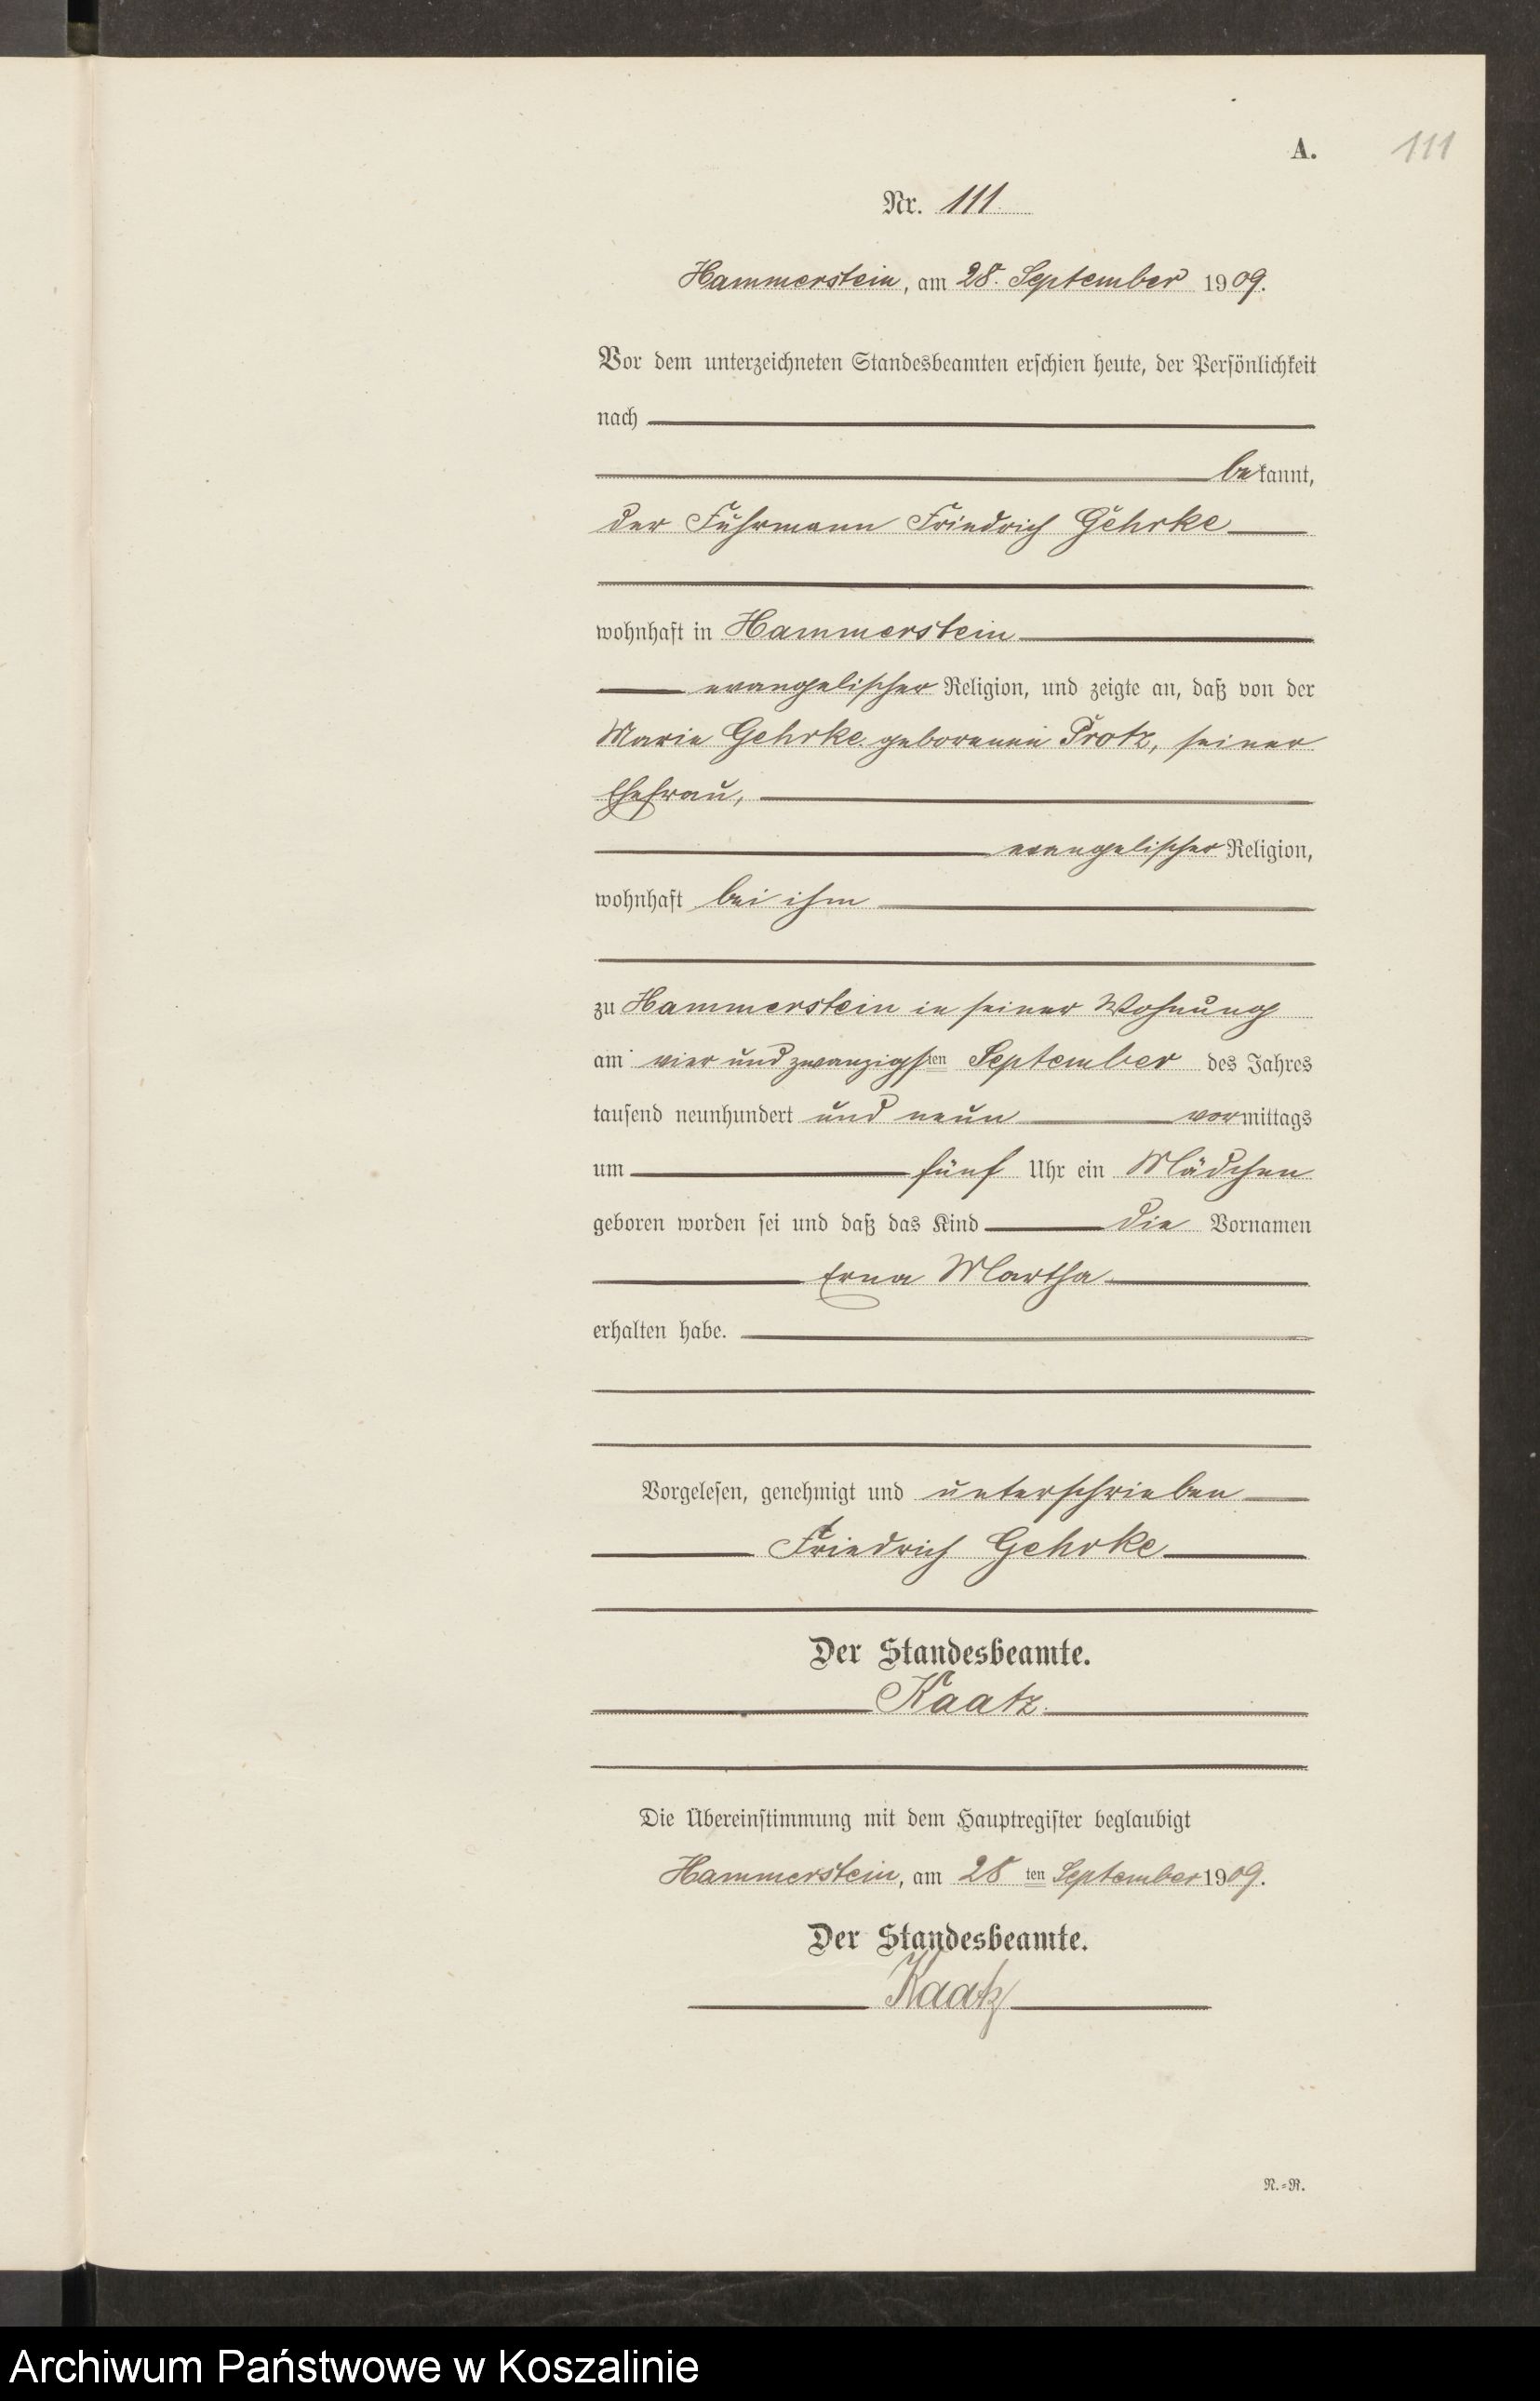 A.
111
Nr. 111
Hammerstein, am 28. September 1909.
Vor dem unterzeichneten Standesbeamten erschien heute, der Persönlichkeit
nach
bekannt,
der Fuhrmann Friedrich Gehrke
wohnhaft in Hammerstein
evangelischer Religion, und zeigte an, daß von der
Marie Gehrke geborenen Protz, seiner
Ehefrau,
evangelischer Religion,
wohnhaft bei ihm
zu Hammerstein in seiner Wohnung
am vier und zwanzigsten September des Jahres
tausend neunhundert und neun vormittags
um fünf Uhr ein Mädchen
geboren worden sei und daß das Kind die Vornamen
Erna Martha
erhalten habe.
Vorgelesen, genehmigt und unterschrieben
Friedrich Gehrke
Der Standesbeamte.
Kaatz.
Die Übereinstimmung mit dem Hauptregister beglaubigt
Hammerstein, am 28 ten September 1909.
Der Standesbeamte.
Kaatz
N.=R.
Archiwum Państwowe w Koszalinie